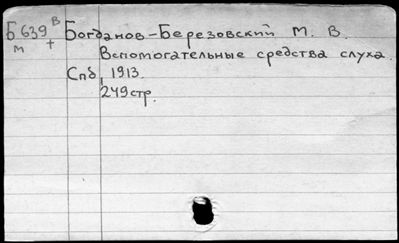 Б 639 В Богданов-Березовский М. В.
м + Вспомогательные средства слуха.
Спб, 1913.
249 стр.